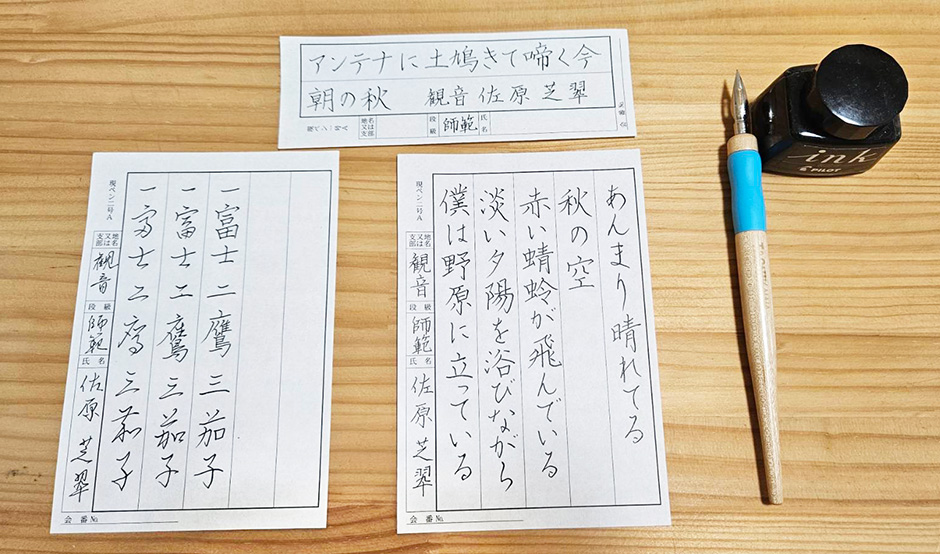 アンテナに土鳩きて啼く今
朝の秋　観音 佐原 芝翠
現ペン一号A
地名又は支部
段級
師範
氏名
あんまり晴れてる
秋の空
赤い蜻蛉が飛んでいる
淡い夕陽を浴びながら
僕は野原に立っている
現ペン二号A
地名又は支部
観音
段級
師範
氏名
佐原 芝翠
会番№
一富士 二鷹 三茄子
一富士 二鷹 三茄子
一富士 二鷹 三茄子
現ペン三号A
地名又は支部
観音
段級
師範
氏名
佐原 芝翠
会番№
ink
PILOT